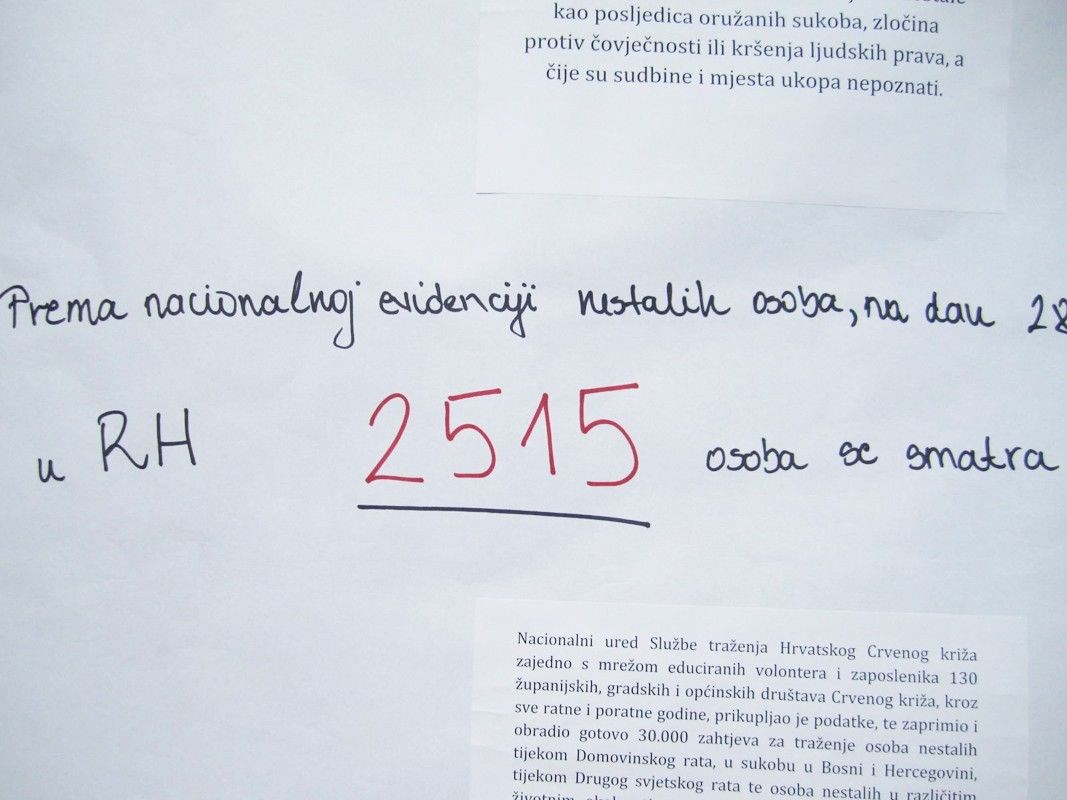 kao posljedica oružanih sukoba, zločina
protiv čovječnosti ili kršenja ljudskih prava, a
čije su sudbine i mjesta ukopa nepoznati.
Prema nacionalnoj evidenciji nestalih osoba, na dan 28
u RH 2515 osoba se smatra
Nacionalni ured Službe traženja Hrvatskog Crvenog križa
zajedno s mrežom educiranih volontera i zaposlenika 130
županijskih, gradskih i općinskih društava Crvenog križa, kroz
sve ratne i poratne godine, prikupljao je podatke, te zaprimio i
obradio gotovo 30.000 zahtjeva za traženje osoba nestalih
tijekom Domovinskog rata, u sukobu u Bosni i Hercegovini,
tijekom Drugog svjetskog rata te osoba nestalih u različitim